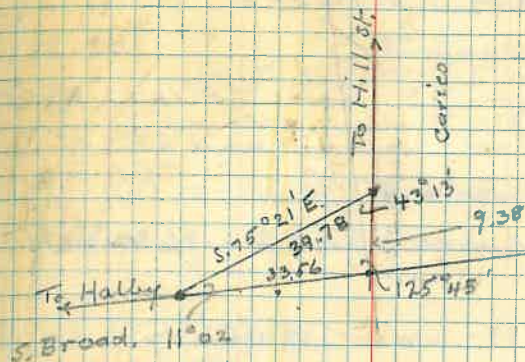 To Hill St.
Carico
S. 75° 21' E.
39.78
43° 13'
9.38
33.56
125° 45'
To Halley
S. Broad.
11° 02